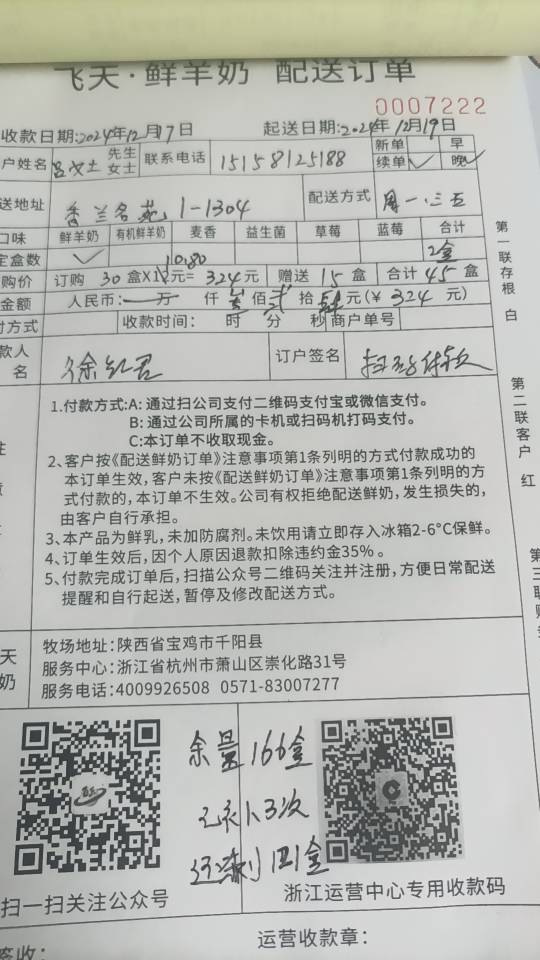 飞天·鲜羊奶 配送订单
0007222
收款日期:2024年12月17日 起送日期:2024年12月19日
户姓名 吕女士 先生 女士 联系电话 15158125188 新单 早
续单✓ 晚✓
送地址 香兰名苑 1-1304 配送方式 周一.三.五
口味 鲜羊奶 有机鲜羊奶 麦香 益生菌 草莓 蓝莓 合计
定盒数 ✓ 2盒
10.80
购价 订购 30 盒X12元= 324元 赠送 15 盒 合计 45 盒
金额 人民币: 万 仟 叁 佰 贰 拾 肆 元(¥ 324 元)
付方式 收款时间: 时 分 秒 商户单号
款人
名 订户签名 扫码付款
1.付款方式:A: 通过扫公司支付二维码支付宝或微信支付。
B: 通过公司所属的卡机或扫码机打码支付。
C:本订单不收取现金。
2、客户按《配送鲜奶订单》注意事项第1条列明的方式付款成功的
本订单生效，客户未按《配送鲜奶订单》注意事项第1条列明的方
式付款的，本订单不生效。公司有权拒绝配送鲜奶，发生损失的，
由客户自行承担。
3、本产品为鲜乳，未加防腐剂。未饮用请立即存入冰箱2-6°C保鲜。
4、订单生效后，因个人原因退款扣除违约金35%。
5、付款完成订单后，扫描公众号二维码关注并注册，方便日常配送
提醒和自行起送，暂停及修改配送方式。
天
奶
牧场地址:陕西省宝鸡市千阳县
服务中心:浙江省杭州市萧山区崇化路31号
服务电话:4009926508 0571-83007277
第一联存根 白
第二联客户 红
第三联
余量166盒
1.3次
121盒
扫一扫关注公众号
浙江运营中心专用收款码
签收:
运营收款章: